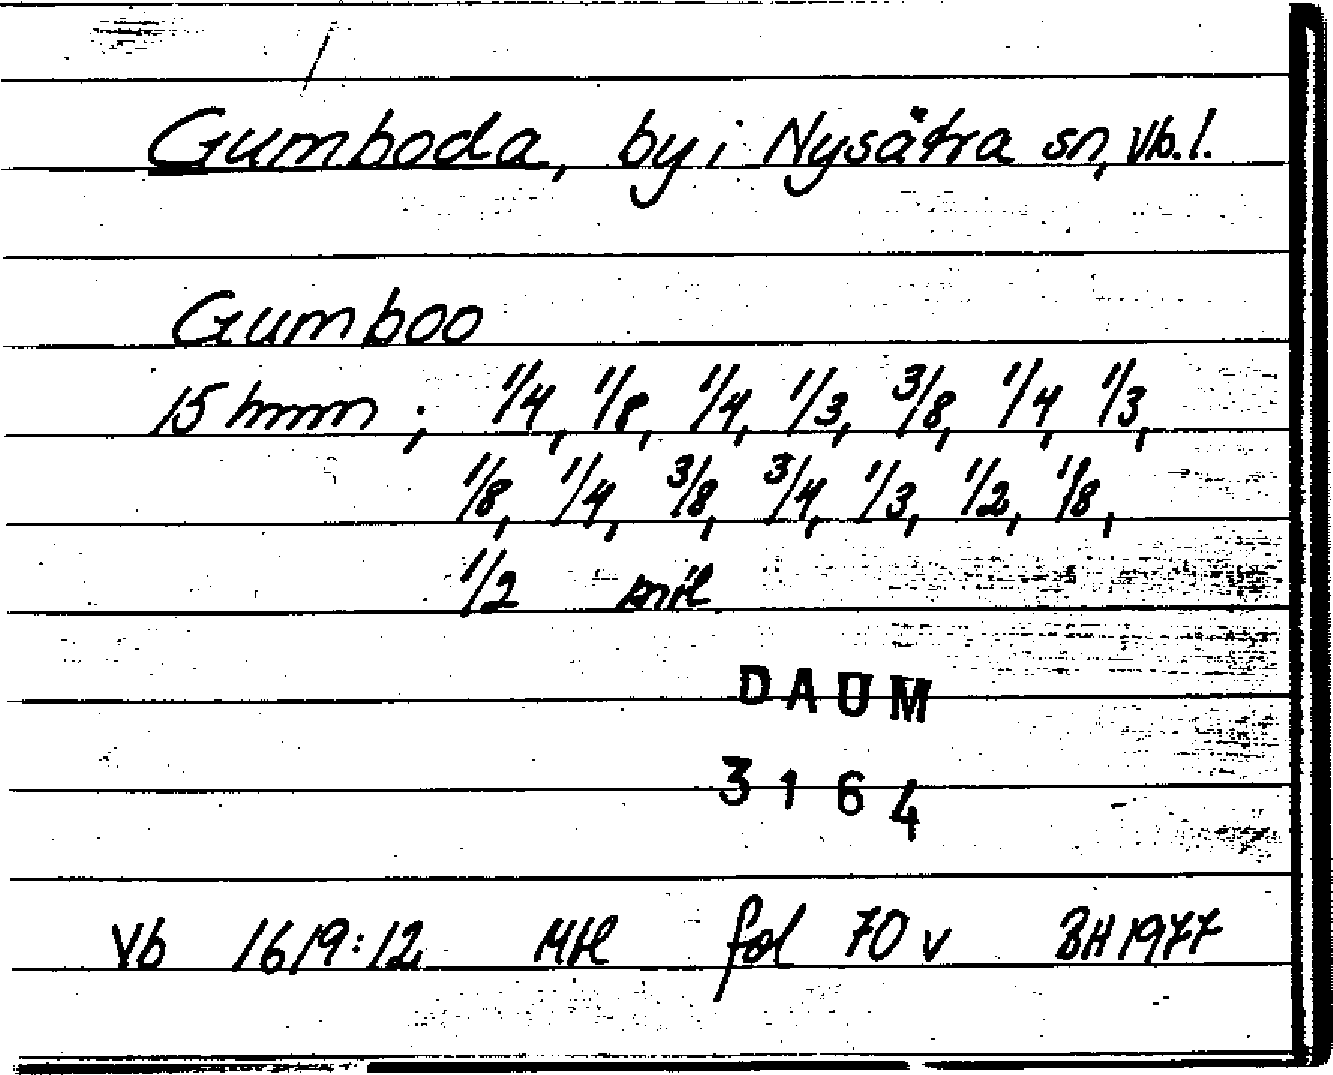 Gumboda, by i Nysätra sn, Vb.l.
Gumboo
15 hmn; 1/4, 1/8, 1/4, 1/3, 3/8, 1/4, 1/3,
1/8, 1/4, 3/8, 3/4, 1/3, 1/2, 1/8,
1/2 mil
DAUM
3164
Vb 1619:12 Hkl fol 70 v BH 1977